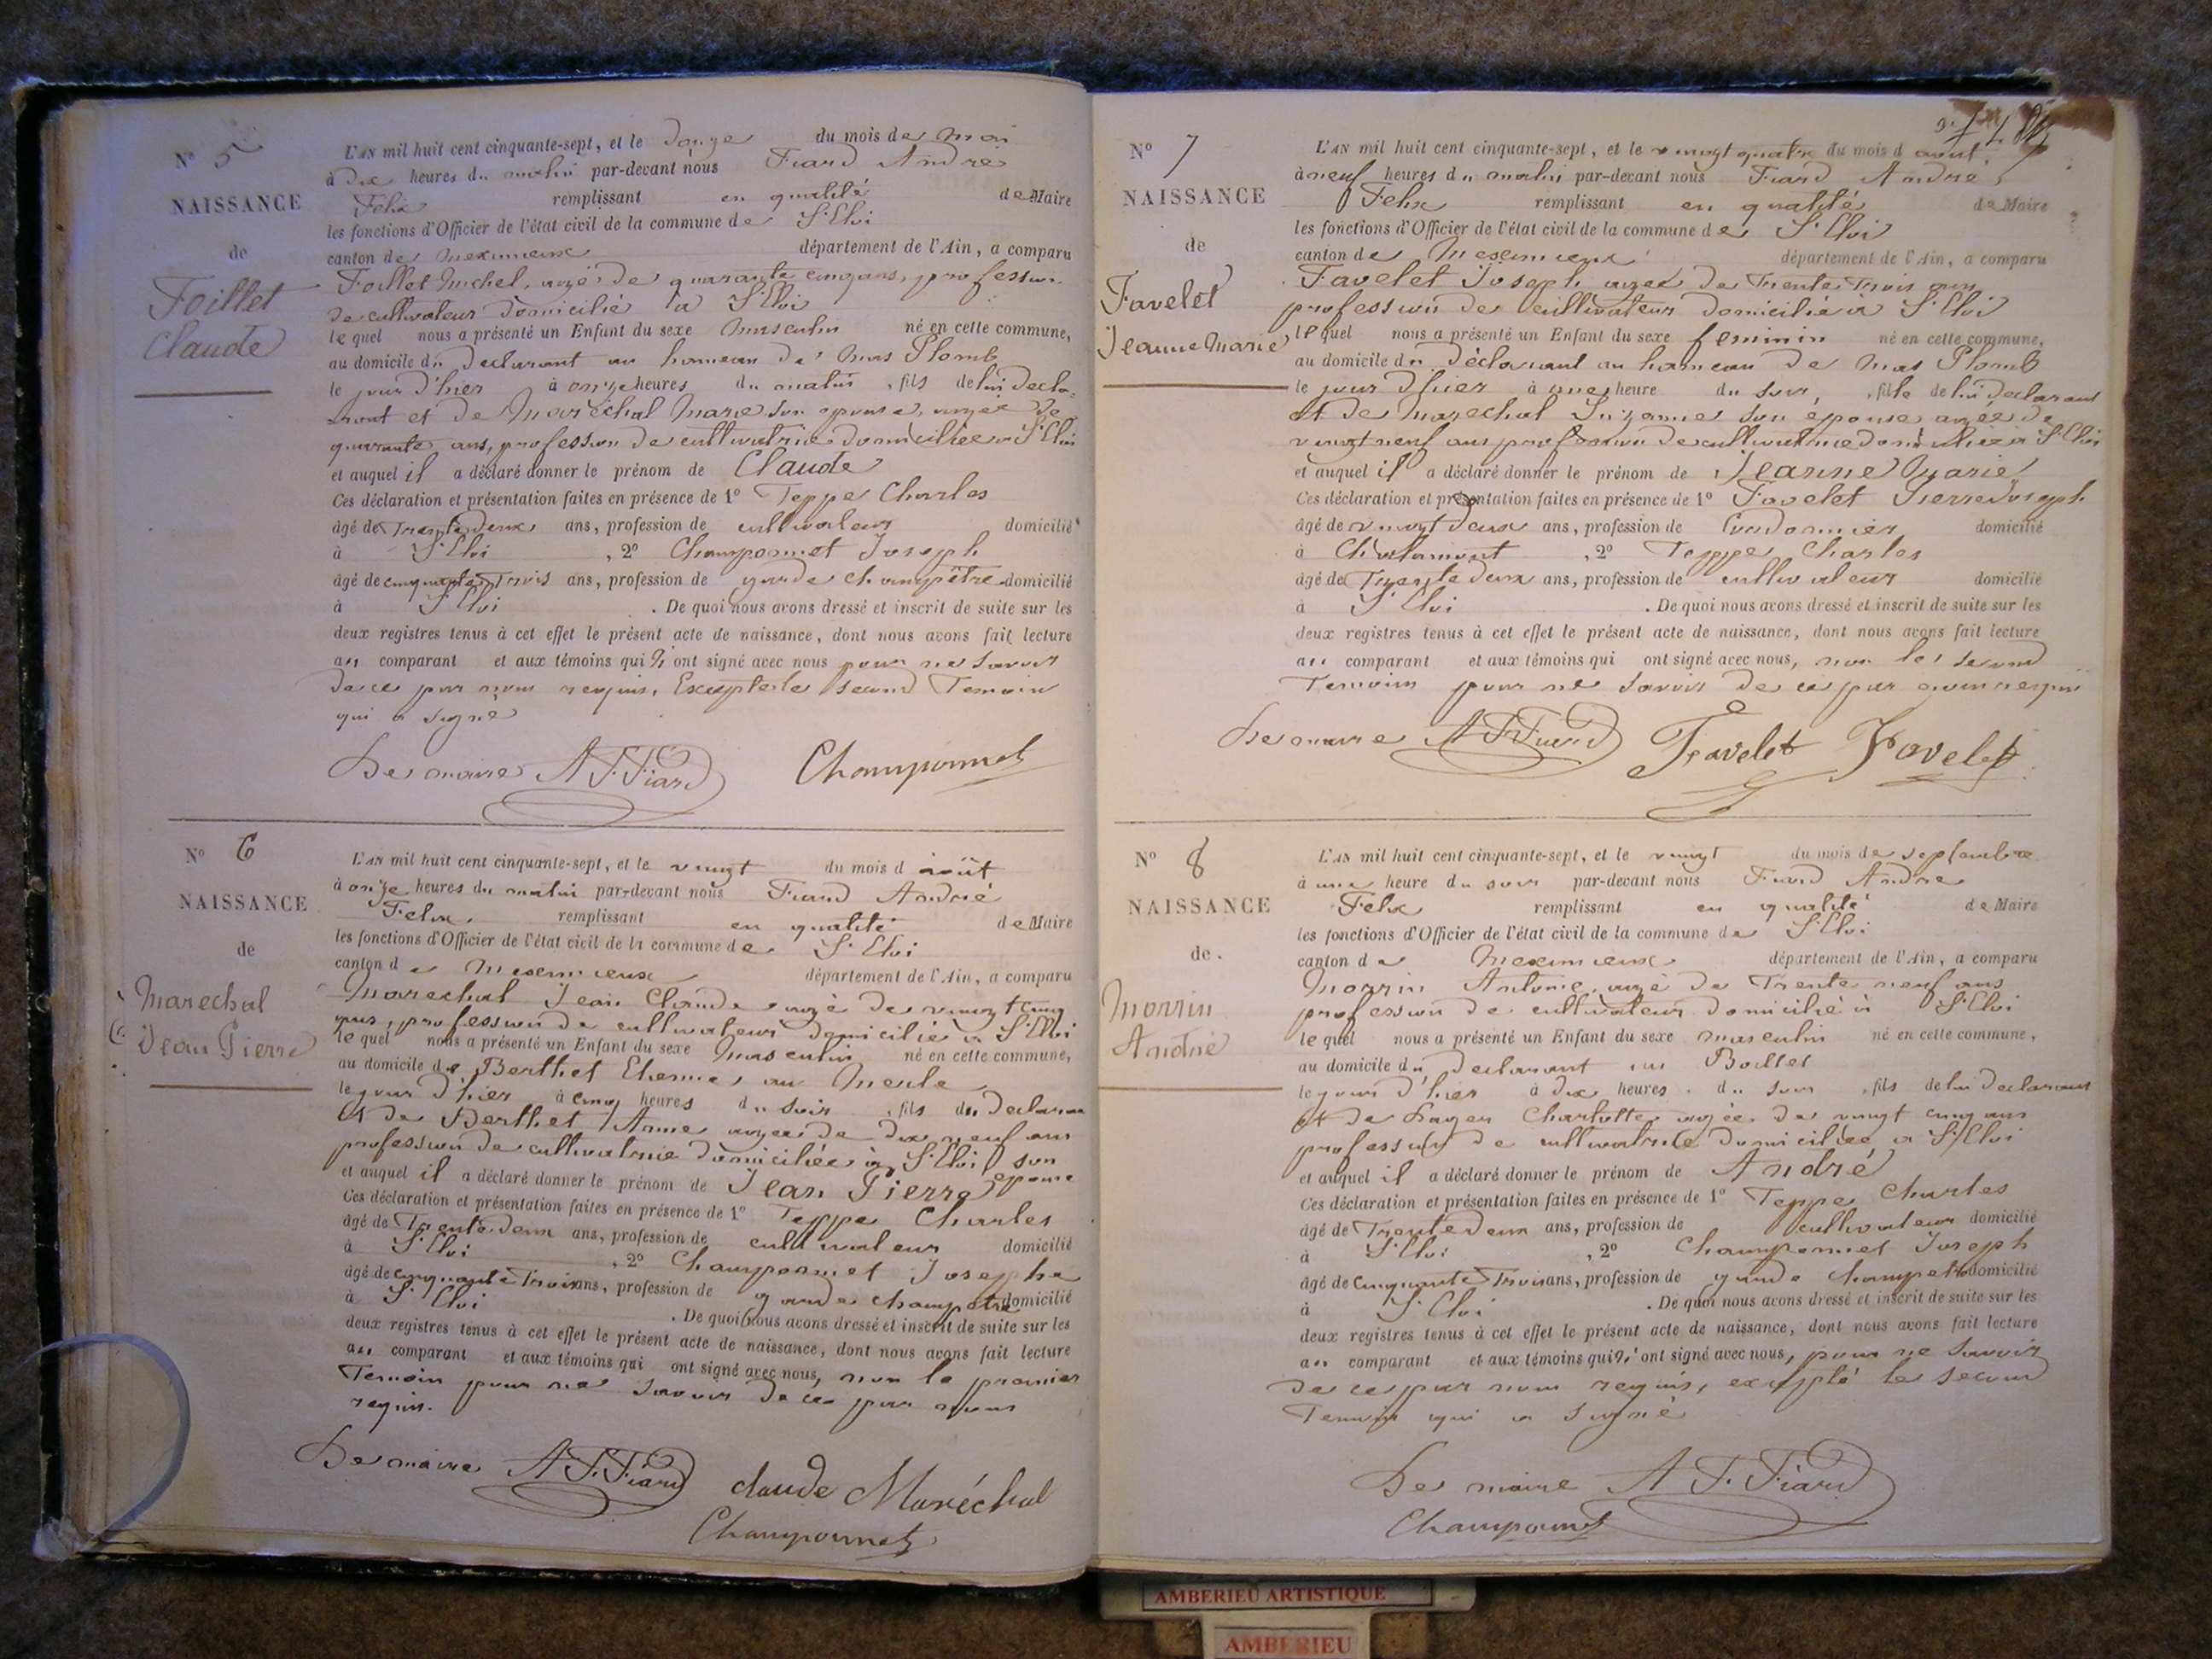 N° 5
NAISSANCE
de
Foillet
Claude
L'AN mil huit cent cinquante-sept, et le douze du mois de mai
à dix heures du matin par-devant nous Fiard André
Felix remplissant en qualité de Maire
les fonctions d'Officier de l'état civil de la commune de St Eloi
canton de Meximieux département de l'Ain, a comparu
Foillet Michel, agé de quarante cinq ans, profession
de cultivateur domicilié à St Eloi
lequel nous a présenté un Enfant du sexe masculin né en cette commune,
au domicile du declarant au hameau de Mas Plomb
le jour d'hier à onze heures du matin, fils de lui decla-
rant et de Maréchal Marie son epouse, agée de
quarante ans, profession de cultivatrice domiciliée à St Eloi
et auquel il a déclaré donner le prénom de Claude
Ces déclaration et présentation faites en présence de 1° Teppe Charles
âgé de Trente deux ans, profession de cultivateur domicilié
à St Eloi, 2° Champonnet Joseph
âgé de cinquante Trois ans, profession de garde champêtre domicilié
à St Eloi. De quoi nous avons dressé et inscrit de suite sur les
deux registres tenus à cet effet le présent acte de naissance, dont nous avons fait lecture
au comparant et aux témoins qui n'ont signé avec nous pour ne savoir
de ce par nous requis, Excepté le second Temoin
qui a signé
Le maire A F. Fiard Champonnet
N° 6
NAISSANCE
de
Marechal
Jean Pierre
L'AN mil huit cent cinquante-sept, et le vingt du mois d août
à onze heures du matin par-devant nous Fiard André
Felix remplissant en qualité de Maire
les fonctions d'Officier de l'état civil de la commune de St Eloi
canton de Meximieux département de l'Ain, a comparu
Marechal Jean Claude agé de vingt cinq
ans, profession de cultivateur domicilié à St Eloi
lequel nous a présenté un Enfant du sexe masculin né en cette commune,
au domicile de Berthet Etienne au
le jour d'hier à cinq heures du soir, fils du Declarant
et de Berthet Anne agée de dix neuf ans
profession de cultivatrice domiciliée à St Eloi son
epouse
et auquel il a déclaré donner le prénom de Jean Pierre
Ces déclaration et présentation faites en présence de 1° Teppe Charles
âgé de Trente deux ans, profession de cultivateur domicilié
à St Eloi, 2° Champonnet Joseph
âgé de cinquante Trois ans, profession de garde champêtre domicilié
à St Eloi. De quoi nous avons dressé et inscrit de suite sur les
deux registres tenus à cet effet le présent acte de naissance, dont nous avons fait lecture
au comparant et aux témoins qui ont signé avec nous, non le premier
Temoin pour ne savoir de ce par nous
requis.
Le maire A F. Fiard claude Maréchal
Champonnet
N° 7
NAISSANCE
de
Favelet
Jeanne Marie
L'AN mil huit cent cinquante-sept, et le vingt quatre du mois d aout,
à neuf heures du matin par-devant nous Fiard André
Felix remplissant en qualité de Maire
les fonctions d'Officier de l'état civil de la commune de St Eloi
canton de Meximieux département de l'Ain, a comparu
Favelet Joseph agé de Trente Trois ans
profession de cultivateur domicilié à St Eloi
lequel nous a présenté un Enfant du sexe feminin né en cette commune,
au domicile du déclarant au hameau de Mas Plomb
le jour d'hier à une heure du soir, fille de lui declarant
et de Marechal Suzanne son epouse agée de
vingt neuf ans profession de cultivatrice domiciliée à St Eloi
et auquel il a déclaré donner le prénom de Jeanne Marie
Ces déclaration et présentation faites en présence de 1° Favelet Pierre Joseph
âgé de vingt deux ans, profession de Cordonnier domicilié
à Chalamont, 2° Teppe Charles
âgé de Trente deux ans, profession de cultivateur domicilié
à St Eloi. De quoi nous avons dressé et inscrit de suite sur les
deux registres tenus à cet effet le présent acte de naissance, dont nous avons fait lecture
au comparant et aux témoins qui ont signé avec nous, non le second
Temoin pour ne savoir de ce par nous requis
Le maire A F Fiard Favelet Favelet
N° 8
NAISSANCE
de.
Morrin
André
L'AN mil huit cent cinquante-sept, et le vingt du mois de septembre
à une heure du soir par-devant nous Fiard André
Felix remplissant en qualité de Maire
les fonctions d'Officier de l'état civil de la commune de St Eloi
canton de Meximieux département de l'Ain, a comparu
Morrin Antoine, agé de Trente neuf ans
profession de cultivateur domicilié à St Eloi
lequel nous a présenté un Enfant du sexe masculin né en cette commune,
au domicile du declarant au
le jour d'hier à dix heures du soir, fils de lui declarant
et de Charlotte agée de vingt cinq ans
profession de cultivatrice domiciliée à St Eloi
et auquel il a déclaré donner le prénom de André
Ces déclaration et présentation faites en présence de 1° Teppe Charles
âgé de Trente deux ans, profession de cultivateur domicilié
à St Eloi, 2° Champonnet Joseph
âgé de cinquante Trois ans, profession de garde champetre domicilié
à St Eloi. De quoi nous avons dressé et inscrit de suite sur les
deux registres tenus à cet effet le présent acte de naissance, dont nous avons fait lecture
au comparant et aux témoins qui n'ont signé avec nous, pour ne savoir
de ce par nous requis, excepté le second
Temoin qui a signé
Le maire A F. Fiard
Champonnet
AMBERIEU ARTISTIQUE
AMBERIEU